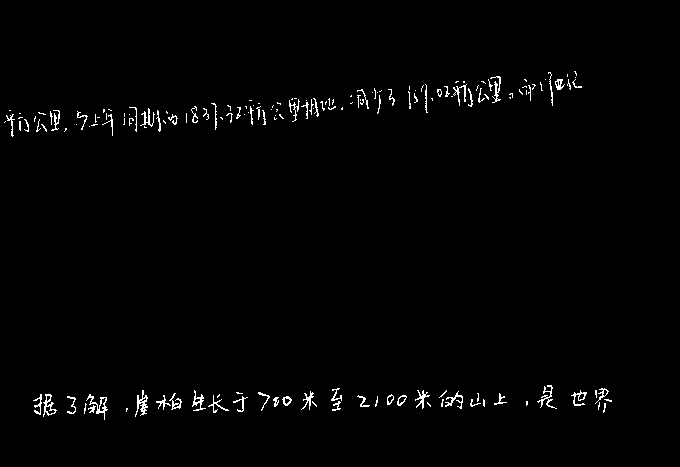 平方公里，与上年同期的1837.32平方公里相比，减少了159.02平方公里。而19世纪
据了解，崖柏生长于700米至2100米的山上，是世界